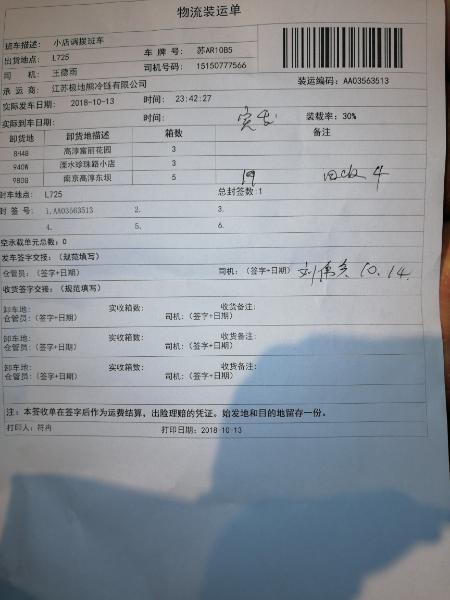 物流装运单
班车描述: 小店调拨班车
出货地点: L725 车 牌 号: 苏AR10B5
司 机: 王德雨 司机号码: 15150777566
承 运 商: 江苏极地熊冷链有限公司 装运编码: AA03563513
实际发车日期: 2018-10-13 时间: 23:42:27
实际到车日期: 时间: 实发 装载率: 30%
卸货地 卸货地描述 箱数 备注
8H48 高淳富丽花园 3
940W 溧水珍珠路小店 3
980B 南京高淳东坝 5 19 回收 4
封车地点: L725 总封签数:1
封 签 号: 1.AA03563513 2. 3.
4. 5. 6.
空承载单元总数: 0
发车签字交接: (规范填写)
仓管员: (签字+日期) 司机: (签字+日期) 10.14
收货签字交接: (规范填写)
卸车地: 实收箱数: 收货备注:
仓管员: (签字+日期) 司机: (签字+日期)
卸车地: 实收箱数: 收货备注:
仓管员: (签字+日期) 司机: (签字+日期)
卸车地: 实收箱数: 收货备注:
仓管员: (签字+日期) 司机: (签字+日期)
注: 本签收单在签字后作为运费结算, 出险理赔的凭证。始发地和目的地留存一份。
打印人: 符冉 打印日期: 2018-10-13